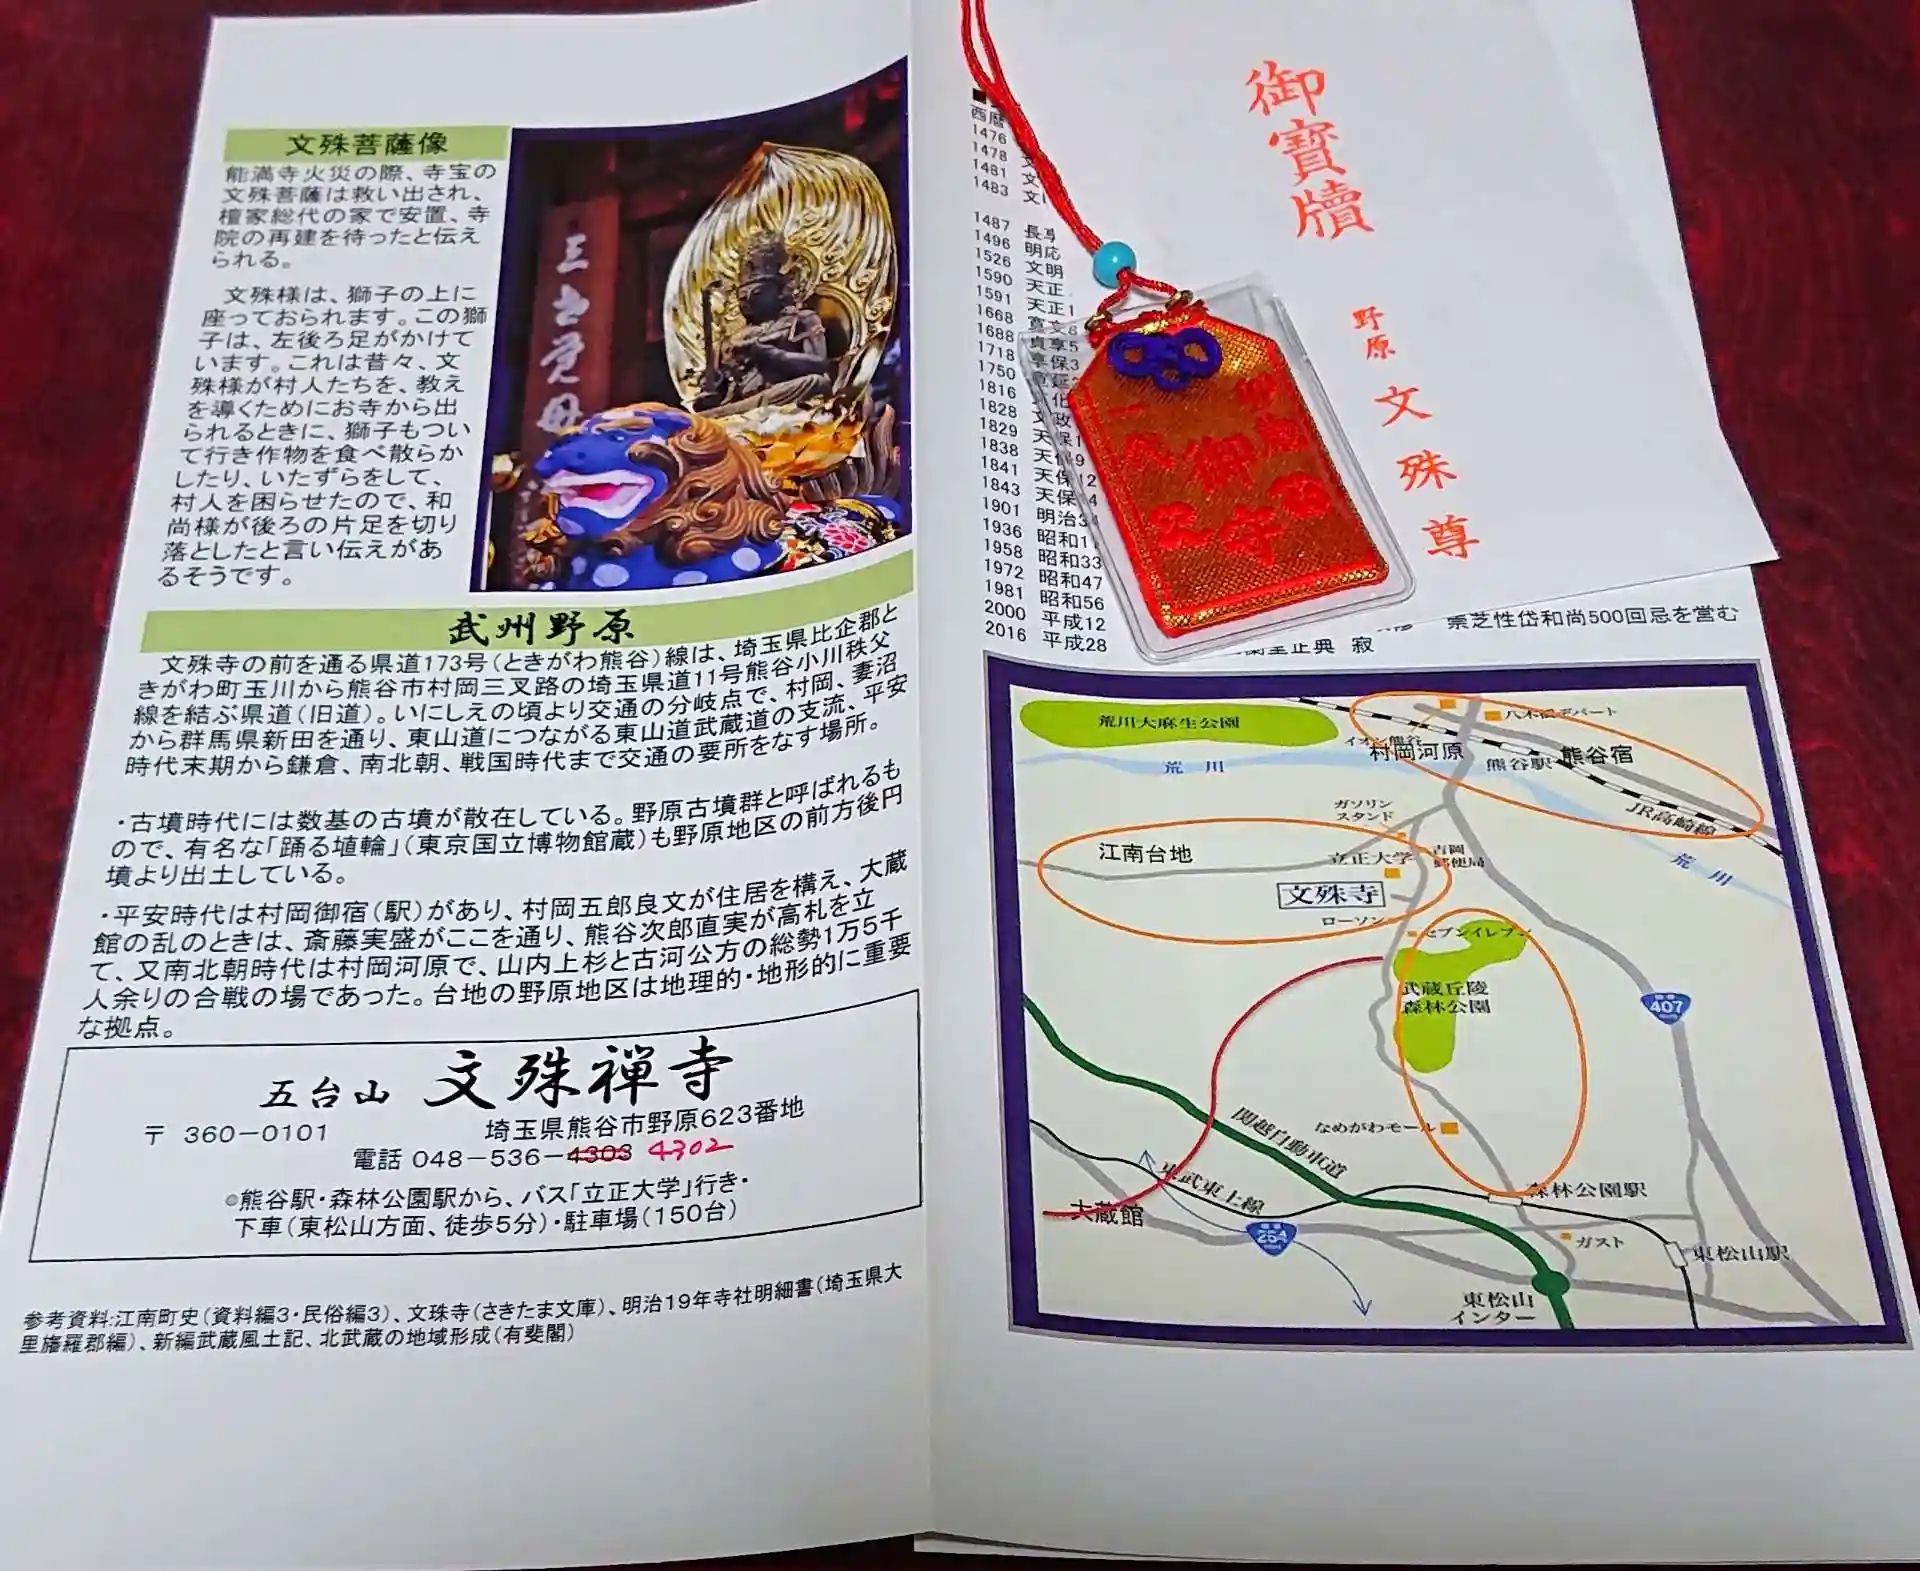 文殊菩薩像
能満寺火災の際、寺宝の
文殊菩薩は救い出され、
檀家総代の家で安置、寺
院の再建を待ったと伝え
られる。
文殊様は、獅子の上に
座っておられます。この獅
子は、左後ろ足がかけて
います。これは昔々、文
殊様が村人たちを、教え
を導くためにお寺から出
られるときに、獅子もつい
て行き作物を食べ散らか
したり、いたずらをして、
村人を困らせたので、和
尚様が後ろの片足を切り
落としたと言い伝えがあ
るそうです。
武州野原
文殊寺の前を通る県道173号(ときがわ熊谷)線は、埼玉県比企郡と
きがわ町玉川から熊谷市村岡三叉路の埼玉県道11号熊谷小川秩父
線を結ぶ県道(旧道)。いにしえの頃より交通の分岐点で、村岡、妻沼
から群馬県新田を通り、東山道につながる東山道武蔵道の支流、平安
時代末期から鎌倉、南北朝、戦国時代まで交通の要所をなす場所。
・古墳時代には数基の古墳が散在している。野原古墳群と呼ばれるも
ので、有名な「踊る埴輪」(東京国立博物館蔵)も野原地区の前方後円
墳より出土している。
・平安時代は村岡御宿(駅)があり、村岡五郎良文が住居を構え、大蔵
館の乱のときは、斎藤実盛がここを通り、熊谷次郎直実が高札を立
て、又南北朝時代は村岡河原で、山内上杉と古河公方の総勢1万5千
人余りの合戦の場であった。台地の野原地区は地理的・地形的に重要
な拠点。
五台山 文殊禅寺
〒 360-0101 埼玉県熊谷市野原623番地
電話 048-536-4303 4302
◎熊谷駅・森林公園駅から、バス「立正大学」行き・
下車(東松山方面、徒歩5分)・駐車場(150台)
参考資料:江南町史(資料編3・民俗編3)、文殊寺(さきたま文庫)、明治19年寺社明細書(埼玉県大
里旛羅郡編)、新編武蔵風土記、北武蔵の地域形成(有斐閣)
御寶牘
野原 文殊尊
西暦
1476
1478 文
1481 文
1483 文
1487 長享
1496 明応
1526 文明
1590 天正
1591 天正1
1668 寛文8
1688 貞享5
1718 享保3
1750 寛延
1816 文化
1828 文政
1829
1838 天保9
1841 天保12
1843 天保14
1901 明治34
1936 昭和11
1958 昭和33
1972 昭和47
1981 昭和56
2000 平成12
2016 平成28
崇芝性岱和尚500回忌を営む
正典 寂
御守
荒川大麻生公園
荒川
イオン熊谷
八木橋デパート
村岡河原
熊谷駅
熊谷宿
JR高崎線
荒川
ガソリン
スタンド
江南台地
立正大学
吉岡
郵便局
文殊寺
ローソン
セブンイレブン
武蔵丘陵
森林公園
407
関越自動車道
なめがわモール
東武東上線
大蔵館
254
森林公園駅
ガスト
東松山駅
東松山
インター